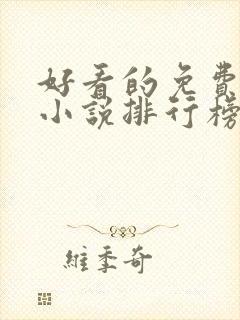 好看的免費
小說排行榜
維季奇